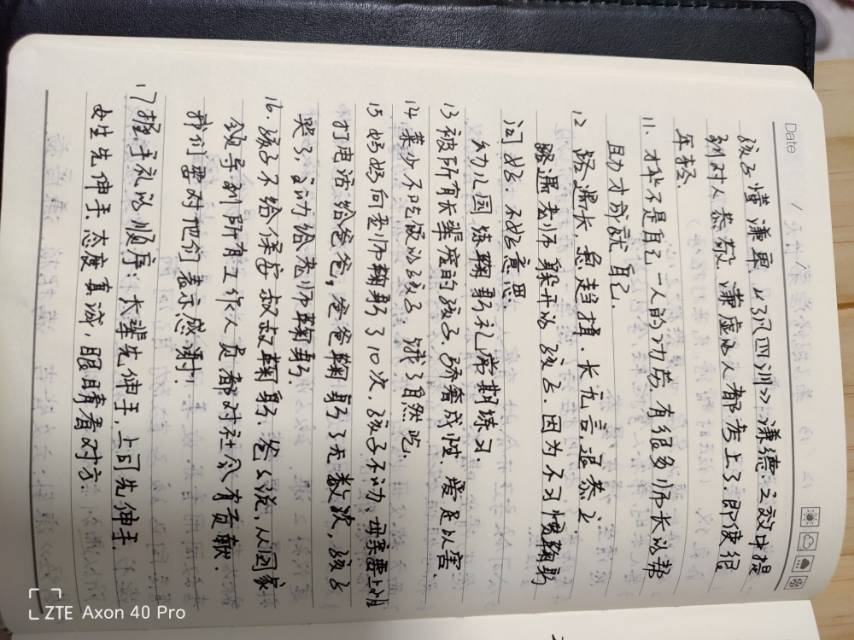 Date
孩子懂谦卑《了凡四训》谦德之效中提
到对人恭敬、谦虚的人都考上了，即使很
年轻.
11. 才华不是自己一人的功劳，有很多师长的帮
助才成就自己.
12 路遇长 急趋揖，长无言，退恭立
路遇老师躲开的孩子，因为不习惯鞠躬
问好. 不好意思.
幼儿园练鞠躬礼，常期练习.
13 被所有长辈宠的孩子，骄奢成性. 爱足以害.
14 菜少不吃饭的孩子，饿了自然吃.
15 妈妈向老师鞠躬了10次，孩子不动、母亲要上班
打电话给爸爸，爸爸鞠躬了无数次，孩子
哭了，主动给老师鞠躬.
16. 孩子不给保安叔叔鞠躬. 爸爸说，从国家
领导到所有工作人员都对社会有贡献.
我们要对他们表示感谢!
17 握手礼的顺序：长辈先伸手，上司先伸手，
女生先伸手，态度真诚，眼睛看对方.
ZTE Axon 40 Pro